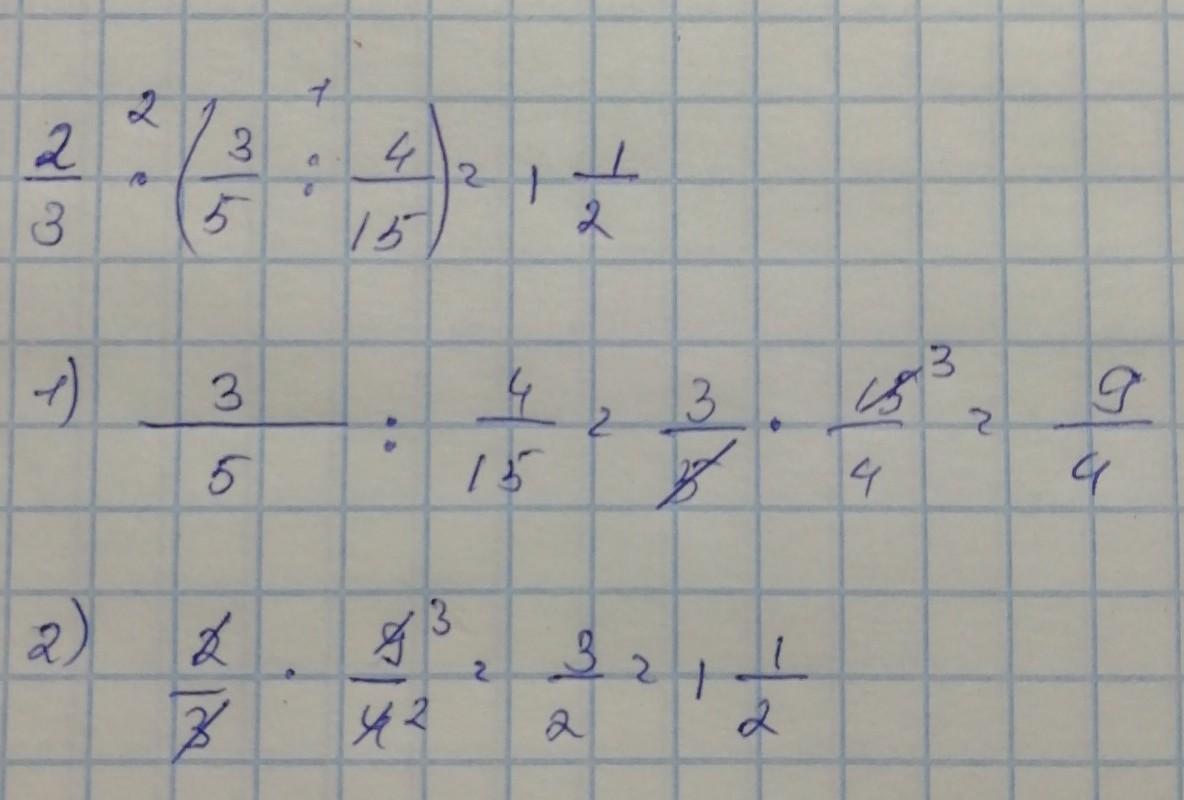 2/3 ·² (3/5 :¹ 4/15) = 1 1/2
1) 3/5 : 4/15 = 3/5 · 15³/4 = 9/4
2) 2/3 · 9³/4² = 3/2 = 1 1/2